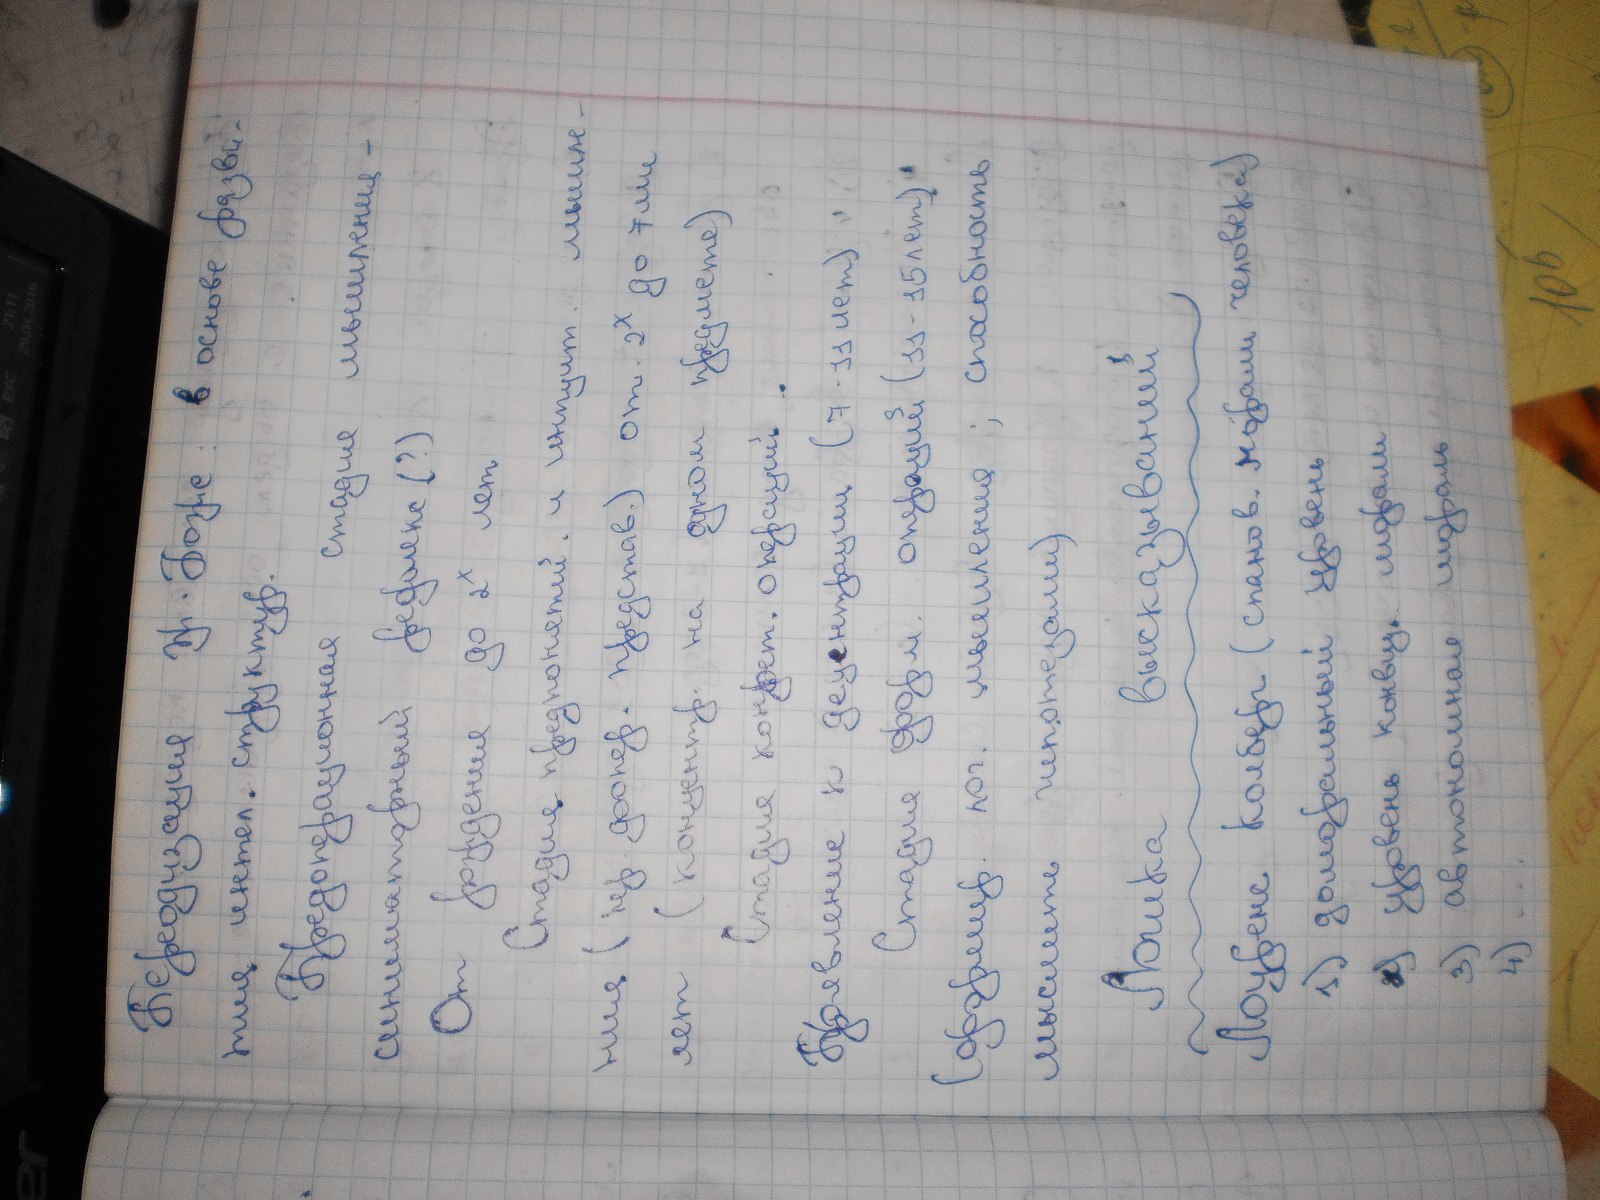 Периодизация Ж. Пиаже: в основе разви-
тия интел. структур.
Предоперационная стадия мышления -
симматорный рефлекс (?)
От рождения до 2х лет
Стадия предпонятий. и интуит. мышле-
ния ( пр. представ.) от. 2х до 7ми
лет ( концентр. на одном предмете)
Стадия конкрет. операций.
Проявление к децентрации (7-11 лет)
Стадия форм. операций (11-15 лет)
(формир. лог. мышления; способность
мыслить гипотезами)
Логика высказываний
Лоуренс Колберг ( станов. морали человека)
1) доморальный уровень
2) уровень конвц. морали
3) автономная мораль
4)